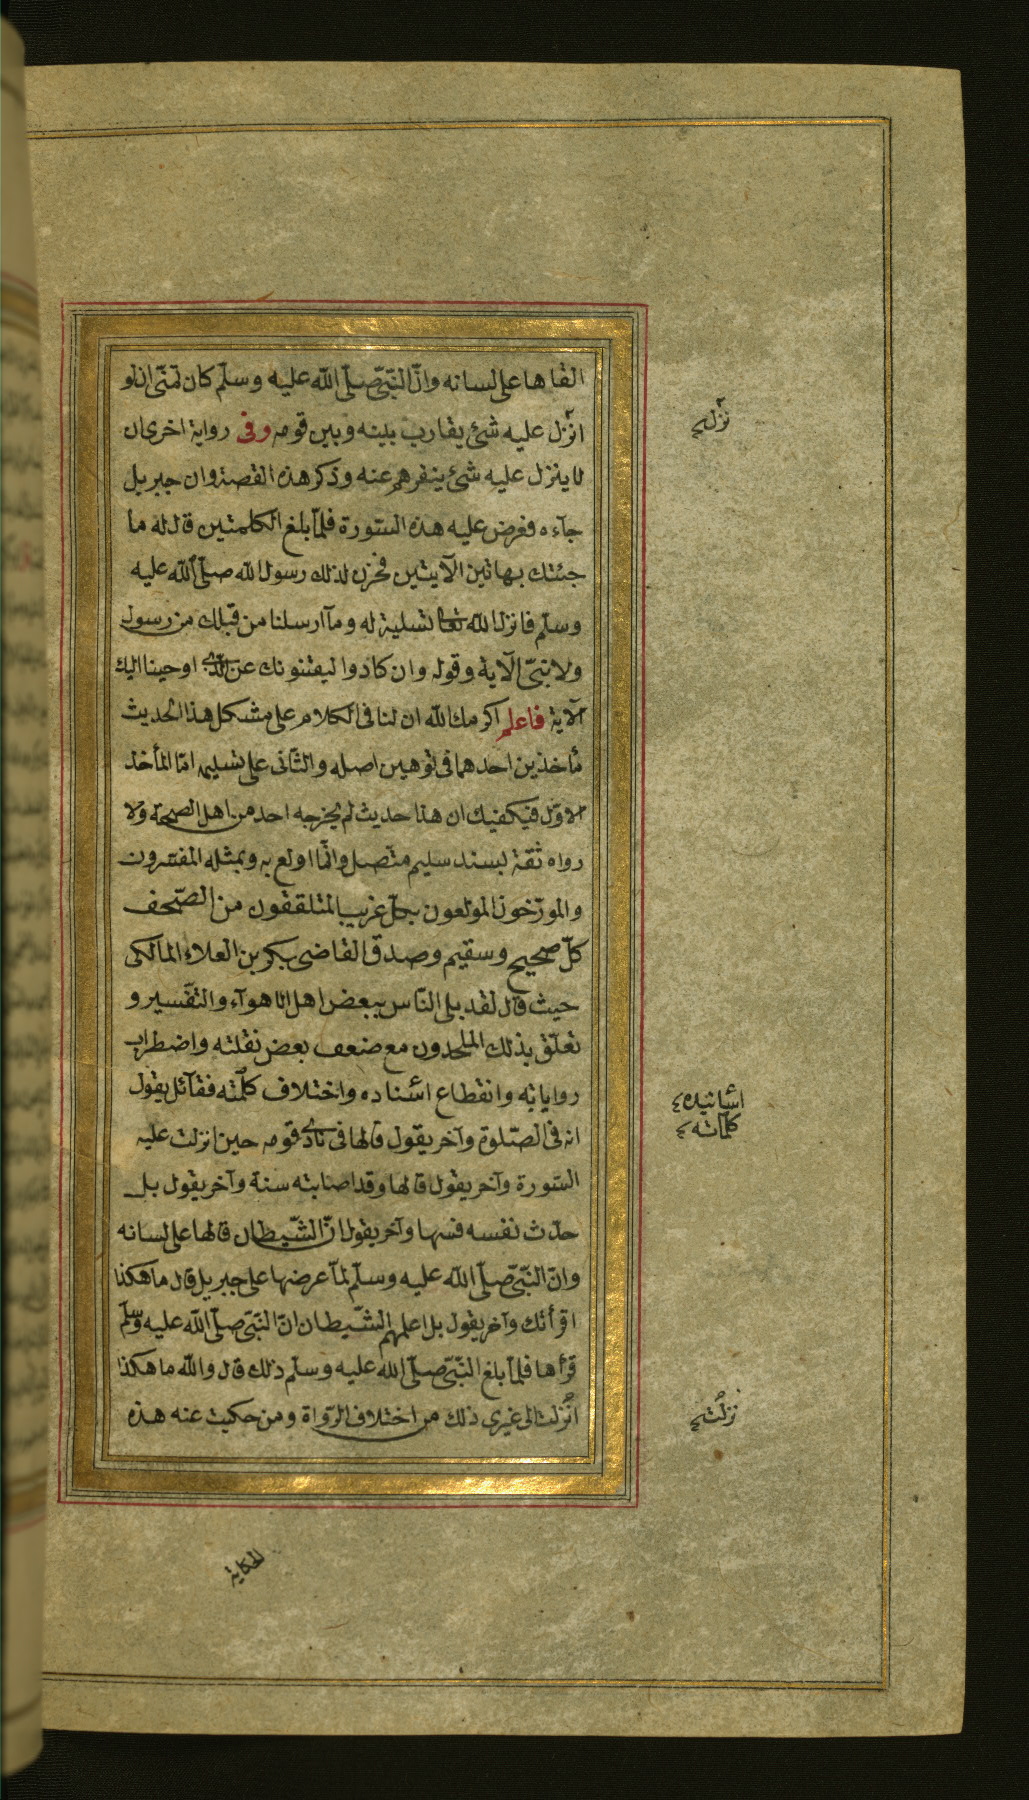 القاها على لسانه وانّ النّبىّ صلّى الله عليه وسلّم كان تمنّى ان لو
انزل عليه شئ يقارب بينه وبين قومه وفى رواية اخرى ان
لا ينزل عليه شئ ينفرهم عنه وذكر هذه القصة وان جبريل
جآءه فعرض عليه هذه السّورة فلمّا بلغ الكلمتين قال له ما
جئتك بهاتين الآيتين فحزن لذلك رسول الله صلّى الله عليه
وسلّم فانزل الله تعالى تسلية له وما ارسلنا من قبلك من رسول
ولا نبىّ الآية وقوله وان كادوا ليفتنونك عن الّذى اوحينا اليك
الآية فاعلم اكرمك الله ان لنا فى الكلام على مشكل هذا الحديث
مأخذين احدهما فى توهين اصله والثّانى على تسليمه امّا المأخذ
الاوّل فيكفيك ان هذا حديث لم يخرجه احد من اهل الصحّة ولا
رواه ثقة بسند سليم متّصل وانّما اولع به وبمثله المفسّرون
والمورّخون المولعون بكلّ غريب المتلقفون من الصّحف
كلّ صحيح وسقيم وصدق القاضى بكر بن العلاء المالكى
حيث قال لقد بلى النّاس ببعض اهل الاهوآء والتّفسير و
تعلّق بذلك الملحدون مع ضعف بعض نقلته واضطراب
رواياته وانقطاع اسناده واختلاف كلمته فقآئل يقول
انه فى الصّلوة وآخر يقول قالها فى نادى قومه حين انزلت عليه
السّورة وآخر يقول قالها وقد اصابته سنة وآخر يقول بل
حدّث نفسه فسها وآخر يقول انّ الشّيطان قالها على لسانه
وانّ النّبىّ صلّى الله عليه وسلّم لمّا عرضها على جبريل قال ما هكذا
اقرأتك وآخر يقول بل اعلمهم الشّيطان انّ النّبىّ صلّى الله عليه وسلّم
قرأها فلمّا بلغ النّبىّ صلّى الله عليه وسلّم ذلك قال والله ما هكذا
انزلت الى غيرى ذلك من اختلاف الرّواة ومن حكيت عنه هذه
نزل
اسانيده
كلماته
نزلت
الحكاية